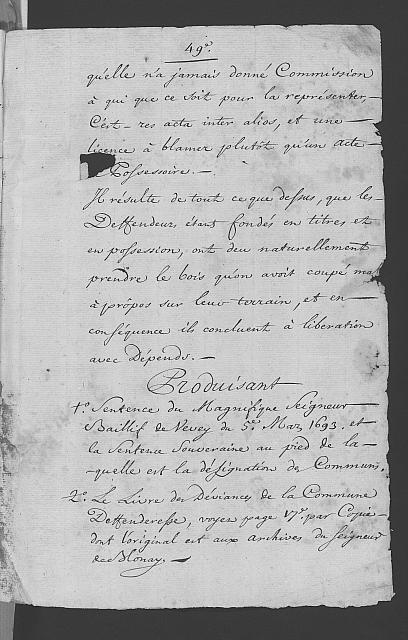 49º.
qu'elle n'a jamais donné Commission
à qui que ce soit pour la représenter,
C'est-res acta inter alios, et une
licence à blamer plutôt qu'un acte
Possessoire.-
Il résulte de tout ce que dessus, que les
Deffendeurs étant fondés en titres et
en possession, ont deu naturellement
prendre le bois qu'on avoit coupé mal
à propos sur leur terrain, et en
conséquence ils concluent à liberation
avec Dépends.-
Produisant
1º. Sentence du Magnifique Seigneur
Baillif de Vevey du 5e. Mars 1693. et
la Sentence Souveraine au pied de la-
-quelle est la désignation des Communs.
2º. Le Livre des Déviances de la Commune
Deffenderesse, voyez page 17e. par Copie
dont l'original est aux archives du Seigneur
de Blonay.-